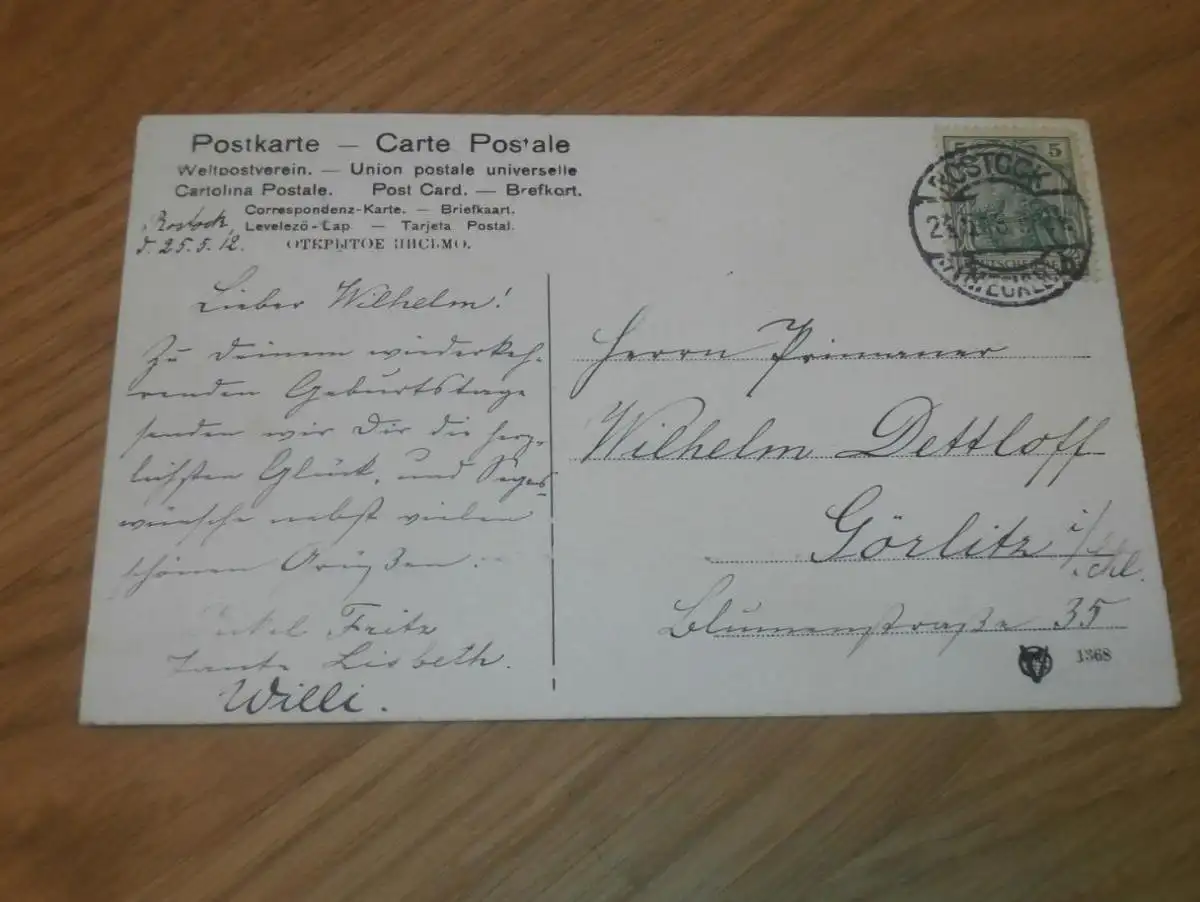 Postkarte — Carte Postale
Weltpostverein. — Union postale universelle
Cartolina Postale. Post Card. — Brefkort.
Correspondenz-Karte. — Briefkaart.
Levelező-Lap. — Tarjeta Postal.
ОТКРЫТОЕ ПИСЬМО.
Rostock,
d. 25.5.12.
Lieber Wilhelm!
Zu Deinem wiederkeh-
renden Geburtstage
senden wir Dir die herz-
lichsten Glück, und Segens
wünsche nebst vielen
schönen Grüßen
Onkel Fritz
Tante Lisbeth.
Willi.
5 5
ROSTOCK
(MECKLB)
Herrn Primaner
Wilhelm Dettloff
Görlitz i/
Schl.
Blumenstraße 35
1368